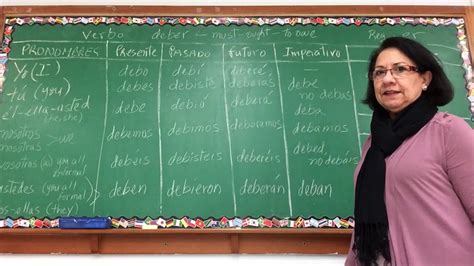 Verbo deber — must-ought-to owe Reg
PRONOMBRES Presente Pasado Futuro Imperativo
Yo (I) debo debí deberé
tú (you) debes debiste deberás debe no debas
él-ella-usted debe debió deberá debe
(he she)
nosotros >we debemos debimos debamos
vosotros (a) (you all informal) debéis debisteis deberéis debed, no debáis
ustedes (you all formal) deben debieron deberán deban
os-ellas (they)